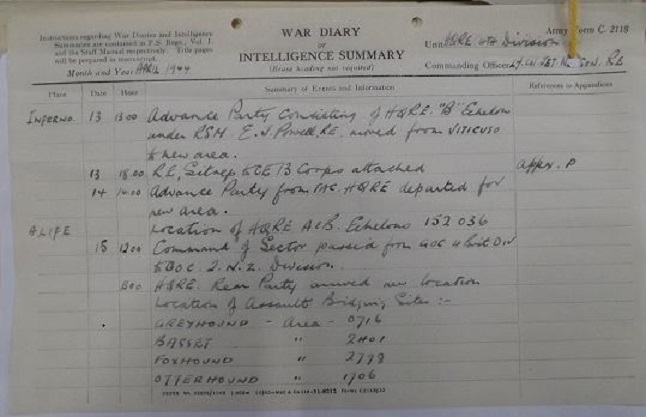 Instructions regarding War Diaries and Intelligence
Summaries are contained in F.S. Regs., Vol. I.
and the Staff Manual respectively. Title pages
will be prepared in manuscript.
Month and Year APRIL 1944
WAR DIARY
OF
INTELLIGENCE SUMMARY
(Erase heading not required)
Army Form C. 2118
Unit HQRE 4th Division
Commanding Officer RE
Place Date Hour Summary of Events and Information References to Appendices
INFERNO 13 1300 Advance Party Consisting of HQRE. "B" Echelon
under RSM. E.J. Powell, RE, moved from VITICUSO
to new area.
13 18.00 R.E. Sitrep to CE 13 Corps attached Appx. P
14 14.00 Advance Party from TAC. HQRE departed for
new area.
ALIFE Location of HQRE A & B. Echelons 152 036
15 1200 Command of Sector passed from GOC 4 Brit Div
to GOC. 2. N.Z. Division.
1300 HQRE. Rear Party arrived new location
Location of Assault Bridging Sites :-
GREYHOUND - Area - 0716
BASSET " 2401
FOXHOUND " 2798
OTTERHOUND " 1906